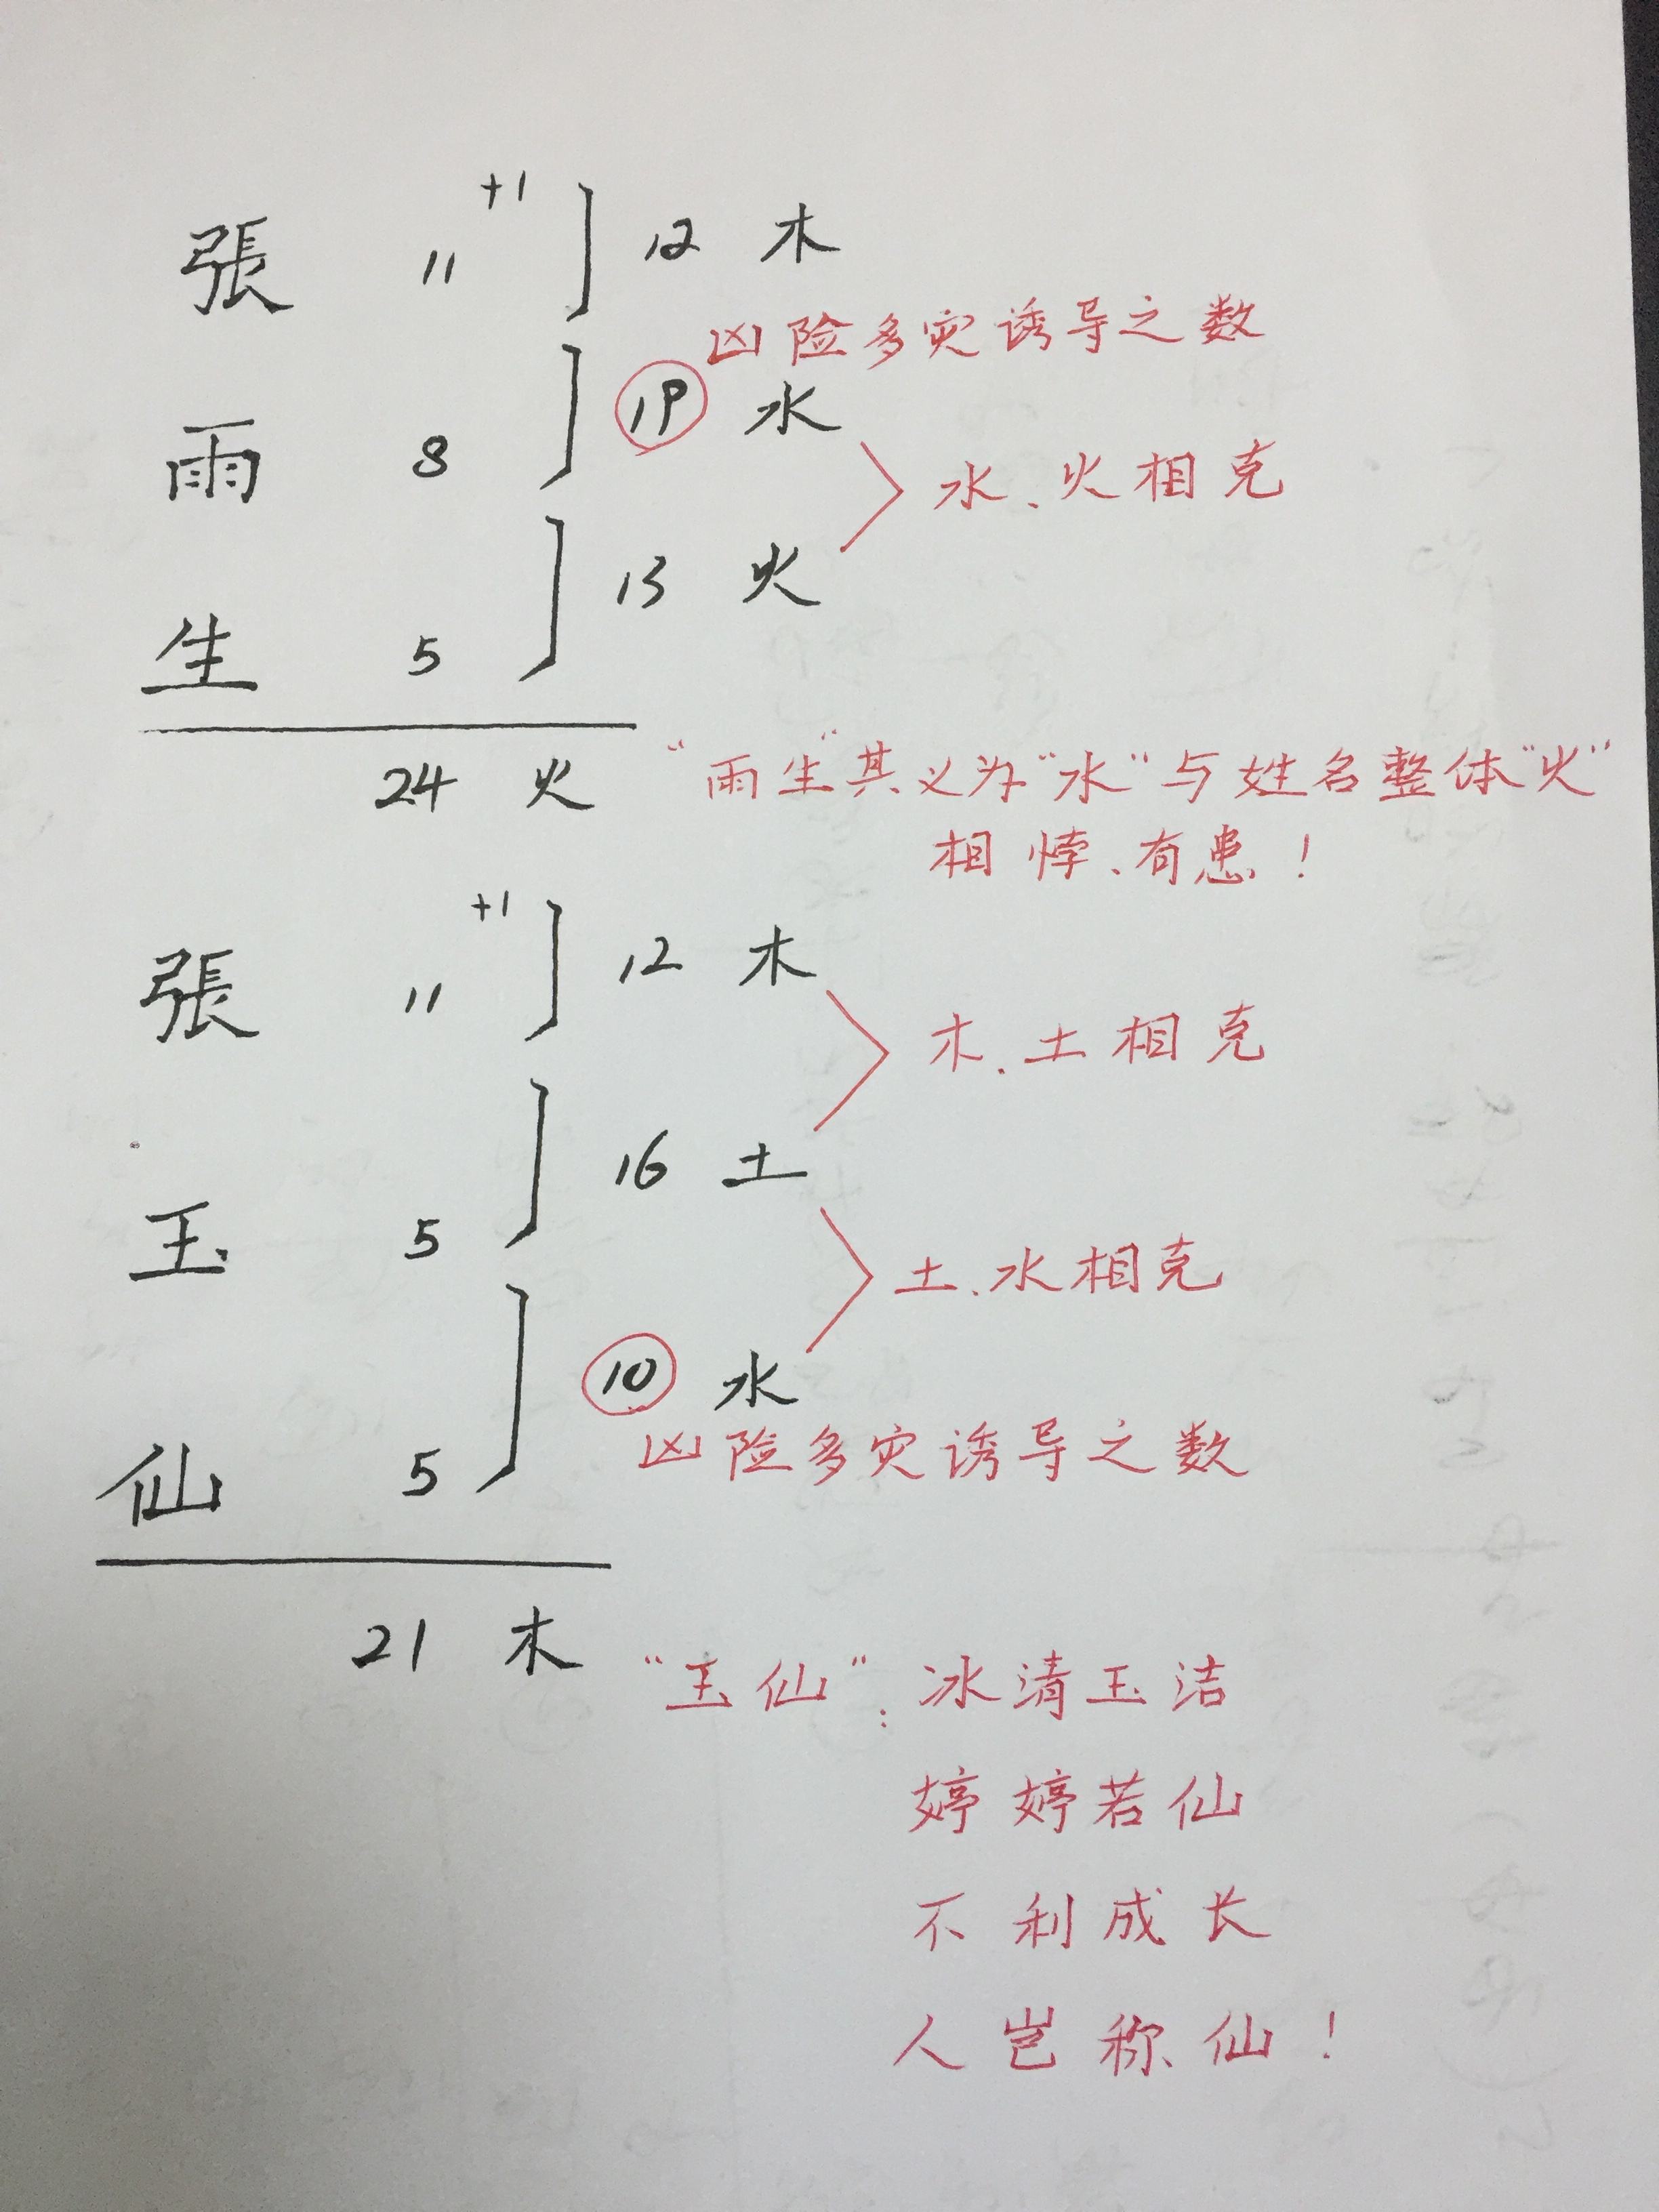 +1
張 11 12 木
凶险多灾诱导之数
雨 8 19 水
水、火相克
生 5 13 火
24 火 "雨生"其义为"水"与姓名整体"火"
相悖、有患!
+1
張 11 12 木
木、土相克
玉 5 16 土
土、水相克
仙 5 10 水
凶险多灾诱导之数
21 木 "玉仙":冰清玉洁
婷婷若仙
不利成长
人岂称仙!